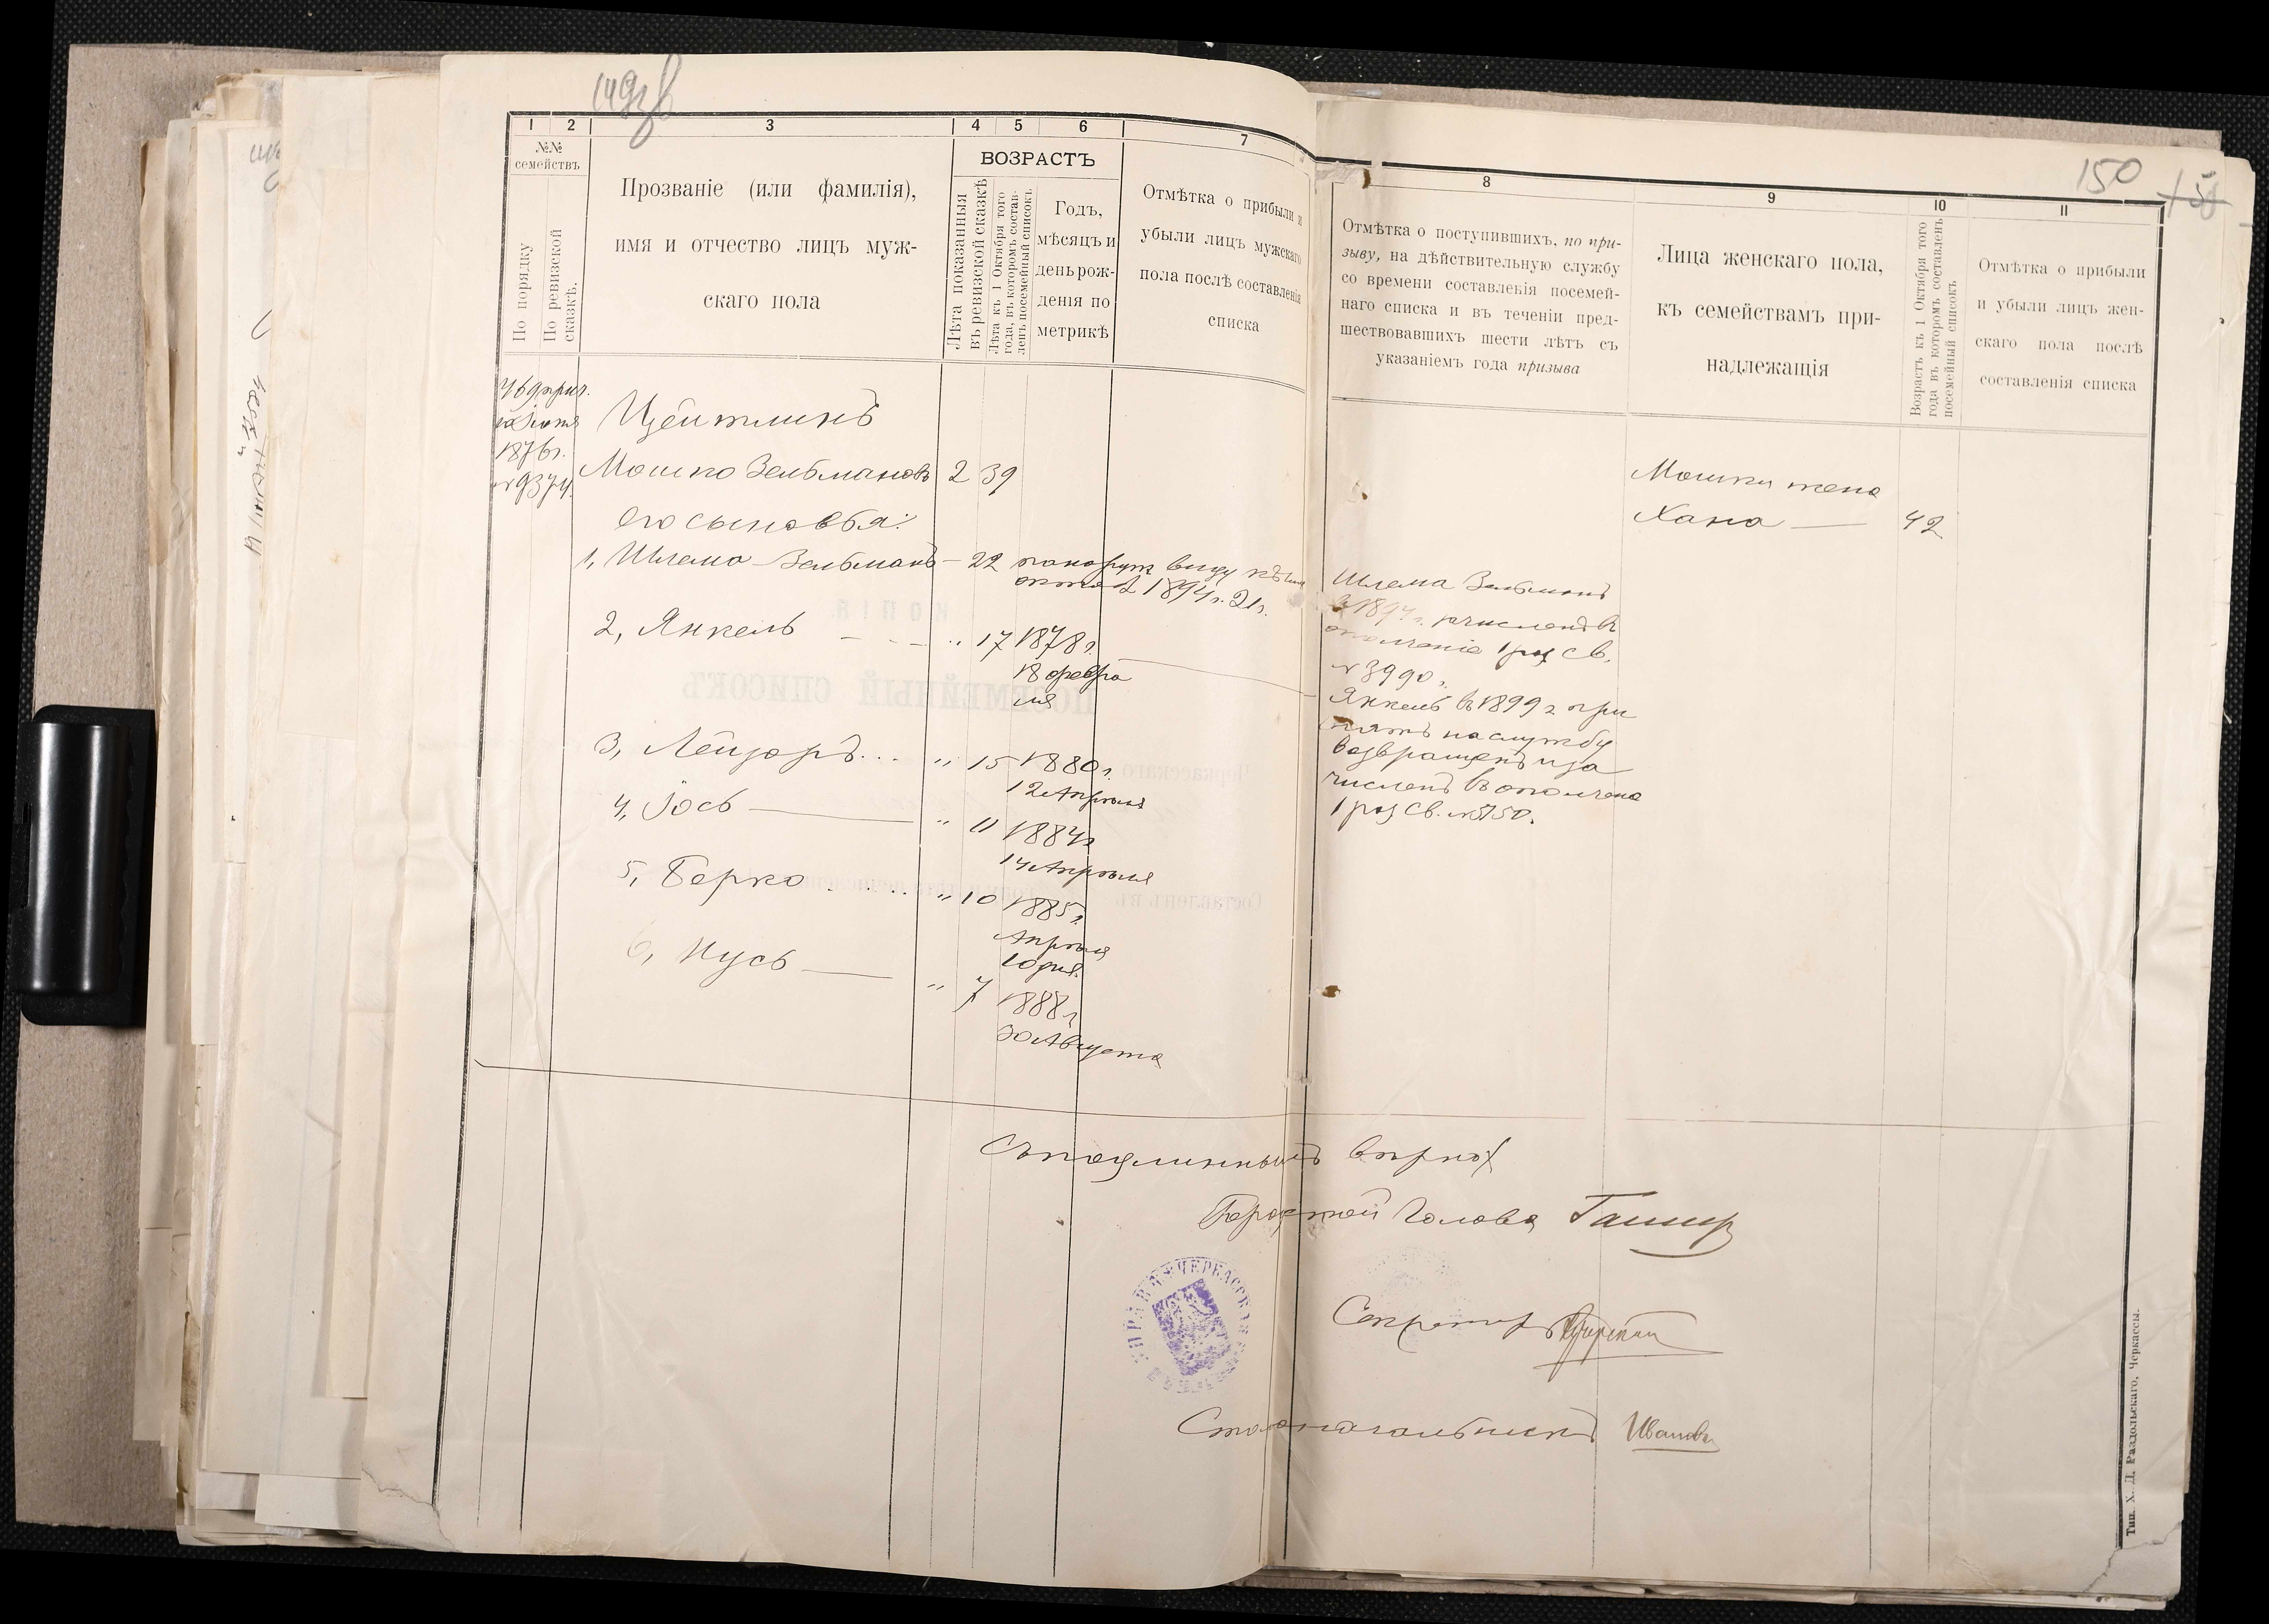 149зв
150
1 2 3 4 5 6 7
№№
семействъ
По порядку
По ревизской
сказкѣ.
Прозваніе (или фамилія),
имя и отчество лицъ муж-
скаго пола
ВОЗРАСТЪ
Лѣта показанныя
въ ревизской сказкѣ
Лѣта къ 1 Октября того
года, въ которомъ состав-
ленъ посемейный списокъ.
Годъ,
мѣсяцъ и
день рож-
денія по
метрикѣ
Отмѣтка о прибыли и
убыли лицъ мужскаго
пола послѣ составленія
списка
8 9 10 11
Отмѣтка о поступившихъ, по при-
зыву, на дѣйствительную службу
со времени составленія посемей-
наго списка и въ теченіи пред-
шествовавшихъ шести лѣтъ съ
указаніемъ года призыва
Лица женскаго пола,
къ семействамъ при-
надлежащія
Возрастъ къ 1 Октября того
года въ которомъ составленъ
посемейный списокъ
Отмѣтка о прибыли
и убыли лицъ жен-
скаго пола послѣ
составленія списка
1876 г.
№ 9374.
Цейтлинъ
Мошко Зельмановъ 2 39
его сыновья:
1, Шлема-Зельманъ — 22
1894 г. 21 г.
2, Янкель - - - „ 17 1878 г.
18 февра
ля
3, Лейзоръ... „ 15 1880 г.
12 Апрѣля
4, Іось — „ 11 1884 г
14 Апрѣля
5, Берко . . . . „ 10 1885 г.
Апрѣля
10 дня.
6, Нусь — „ 7 1888 г.
30 Августа
Шлема Зельманъ
въ 1894 г. зачисленъ въ
ополченіе 1 раз св.
№ 3990.
Янкель въ 1899 г при
нятъ на службу
возвращенъ и за
численъ въ ополчение
1 раз св. № 5150.
Мошки жена
Хана — 42
Съ подлиннымъ вѣрно:
Городской Голова
ЧЕРКАССКАЯ
Секретарь
Столоначальникъ Ивановъ
Тип. Х. Д. Раздольскаго, Черкассы.